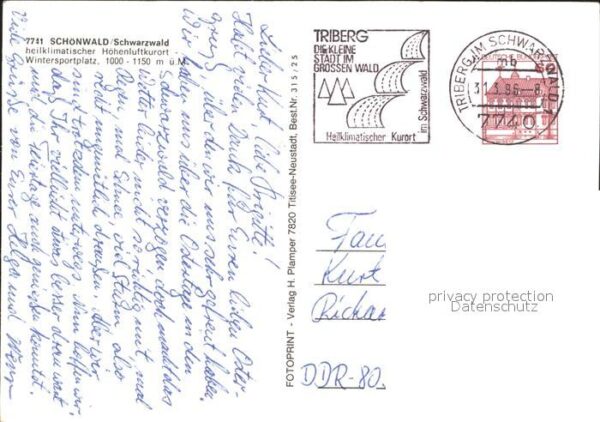 7741 SCHÖNWALD/Schwarzwald
heilklimatischer Höhenluftkurort -
Wintersportplatz, 1000 - 1150 m ü.M.
Lieber Kurt, liebe Brigitte!
Habt vielen Dank für Euren lieben Oster-
gruß, über den wir uns sehr gefreut haben.
Wir haben uns über die Ostertage in den
Schwarzwald verzogen, doch macht das
Wetter leider nicht so richtig mit, mal
Regen, mal Schnee, viel Sturm, also
recht ungemütlich draußen. Aber wir
sind trotzdem unterwegs. Nun hoffen wir,
daß Ihr vielleicht etwas besser dran wart
und die Feiertage auch genießen konntet.
Viele Grüße von Eurer Helga und
FOTOPRINT - Verlag H. Plamper 7820 Titisee-Neustadt, Best.Nr. 315/25
TRIBERG
DIE KLEINE
STADT IM
GROSSEN WALD
Heilklimatischer Kurort
im Schwarzwald
TRIBERG IM SCHWARZWALD 1
mb
31.3.86-8
7740
Fam
Kurt
Richar
DDR-80
privacy protection
Datenschutz